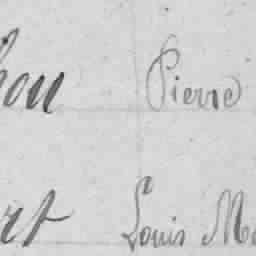 hou Pierre
rt Louis Ma